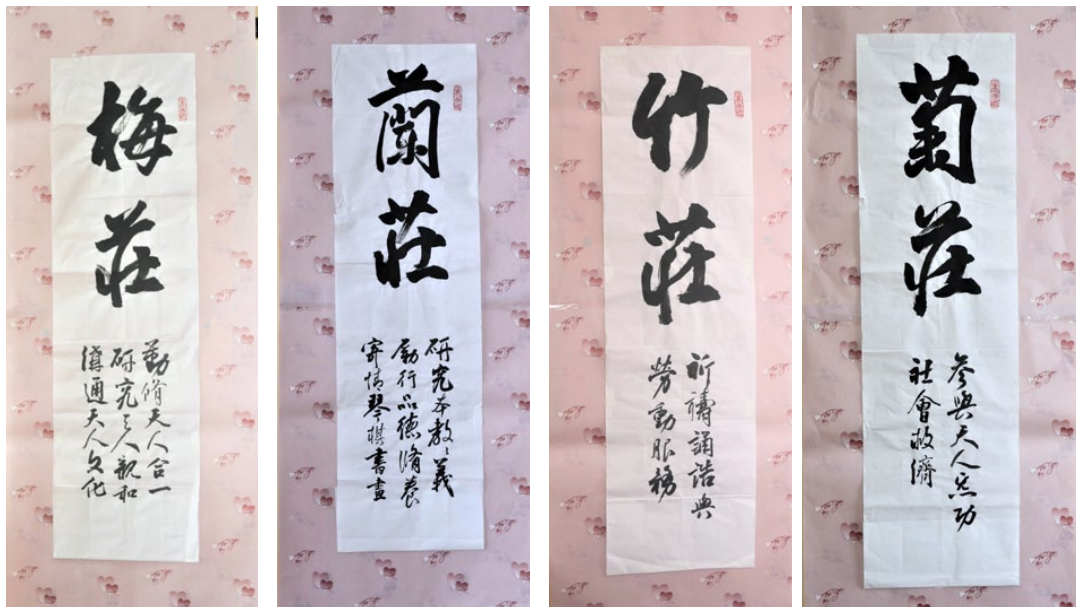 梅莊
勤脩天人合一
研究天人親和
通天人文化
蘭莊
研究本教〻義
勵行品德脩養
寄情琴棋書畫
竹莊
祈禱誦誥典
勞動服務
菊莊
參與天人炁功
社會救濟